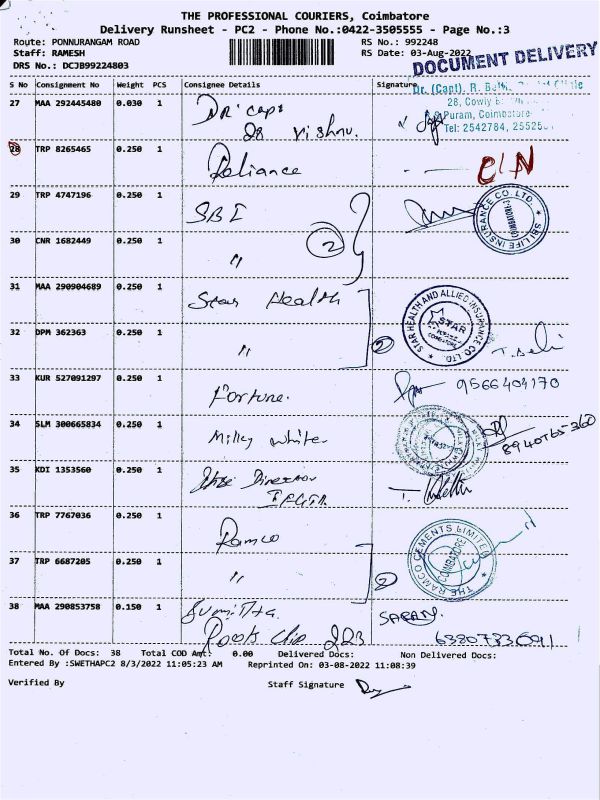 THE PROFESSIONAL COURIERS, Coimbatore
Delivery Runsheet - PC2 - Phone No.:0422-3505555 - Page No.:3
Route: PONNURANGAM ROAD
RS No.: 992248
Staff: RAMESH
RS Date: 03-Aug-2022
DRS No.: DCJB99224803
DOCUMENT DELIVERY
S No Consignment No Weight PCS Consignee Details Signature
Dr. (Capt). R.
28, Cowly
Puram, Coimbatore
Tel: 2542784,
27 MAA 292445480 0.030 1 DR Capt
28 Vishnu.
28 TRP 8265465 0.250 1 Reliance
29 TRP 4747196 0.250 1 SBI
SBI LIFE INSURANCE CO. LTD.
30 CNR 1682449 0.250 1 "
2
31 MAA 290904689 0.250 1 Star Health
STAR HEALTH AND ALLIED INSURANCE CO. LTD.
STAR
32 DPM 362363 0.250 1 "
2
33 KUR 527091297 0.250 1 Fortune.
9566404170
34 SLM 300665834 0.250 1 Milky white
35 KDI 1353560 0.250 1 Director
36 TRP 7767036 0.250 1 Ramco
THE RAMCO CEMENTS LIMITED
COIMBATORE
37 TRP 6687205 0.250 1 "
2
38 MAA 290853758 0.150 1
SARAN
223
Total No. Of Docs: 38 Total COD Amt: 0.00 Delivered Docs: Non Delivered Docs:
Entered By :SWETHAPC2 8/3/2022 11:05:23 AM Reprinted On: 03-08-2022 11:08:39
Verified By Staff Signature